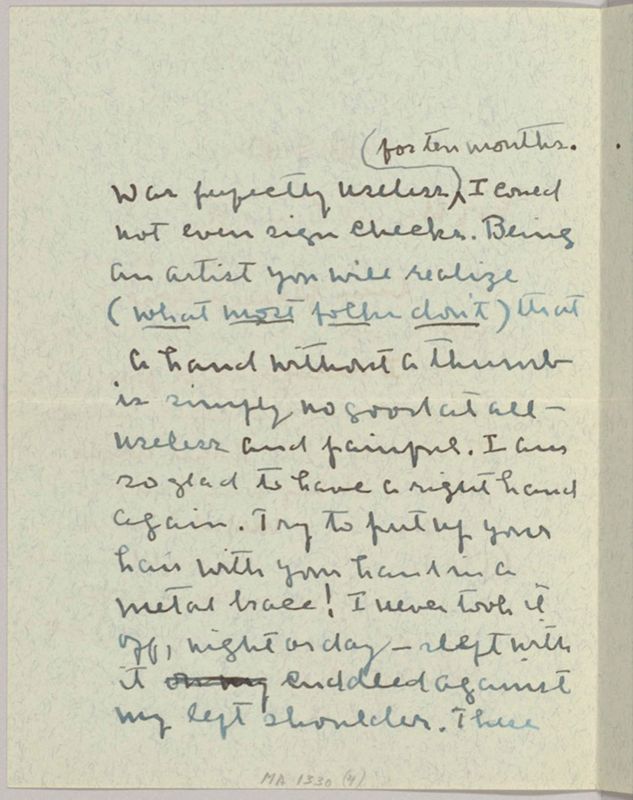 (for ten months.
was perfectly useless), I coued
not even sign checks. Being
an artist you will realize
(what most folks don't) that
a hand without a thumb
is simply no good at all –
useless and painful. I am
so glad to have a right hand
again. Try to put up your
hair with your hand in a
metal brace! I never took it
off, night or day – slept with
it on my cuddled against
my left shoulder. These
MA 1330 (4)